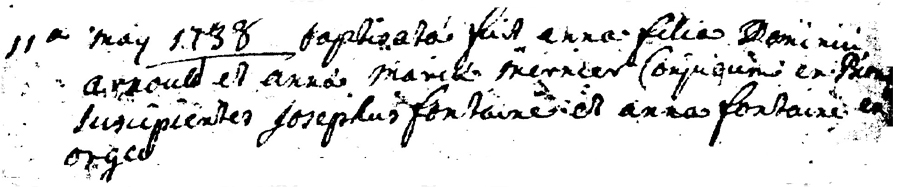 11a may 1738 baptisata fuit anna filia Dominici
arnould et anna maria mernier Conjugum en
suscipientes Josephus fontaine et anna fontaine en
orgeo